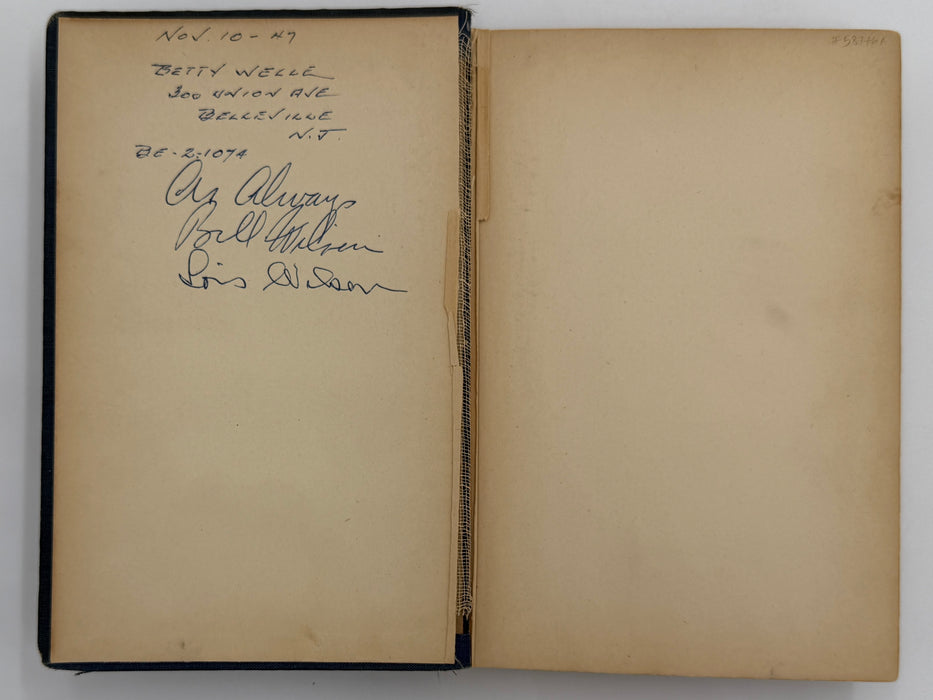 Nov. 10 - 47
BETTY WELLE
300 UNION AVE
BELLEVILLE
N.J.
BE-2-1074
As Always
Bill Wilson
Lois Wilson